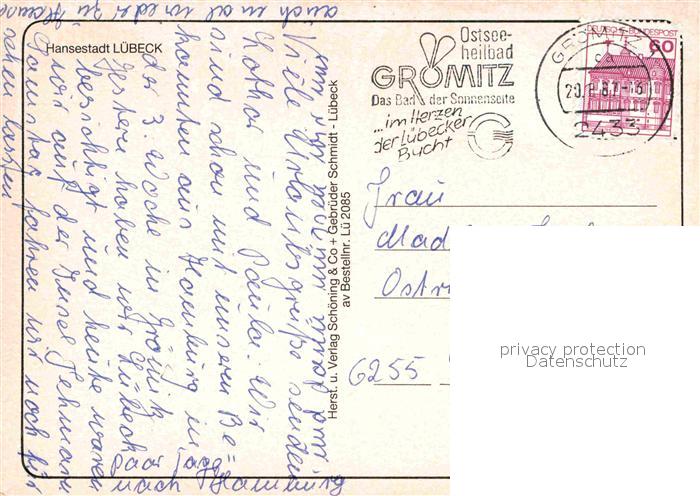 Hansestadt LÜBECK
Viele Urlaubsgrüße senden
Lothar und Paula. Wir
sind schon mit unserem Be=
kannten aus Hamburg in
der 3 Woche in Grömitz
Gestern haben wir Lübeck
besichtigt und heute waren
wir auf der Insel Fehmarn
Samstag fahren wir noch für
paar Tage
nach Hamburg
und dann
auch mal wieder zu Hause
sehen lassen
Herst. u. Verlag Schöning & Co + Gebrüder Schmidt - Lübeck
av Bestellnr. Lü 2085
Ostsee-
heilbad
GRÖMITZ
Das Bad der Sonnenseite
...im Herzen
der Lübecker
Bucht
GRÖMITZ
20. 87-
2433
DEUTSCHE BUNDESPOST
60
Frau
6255
privacy protection
Datenschutz